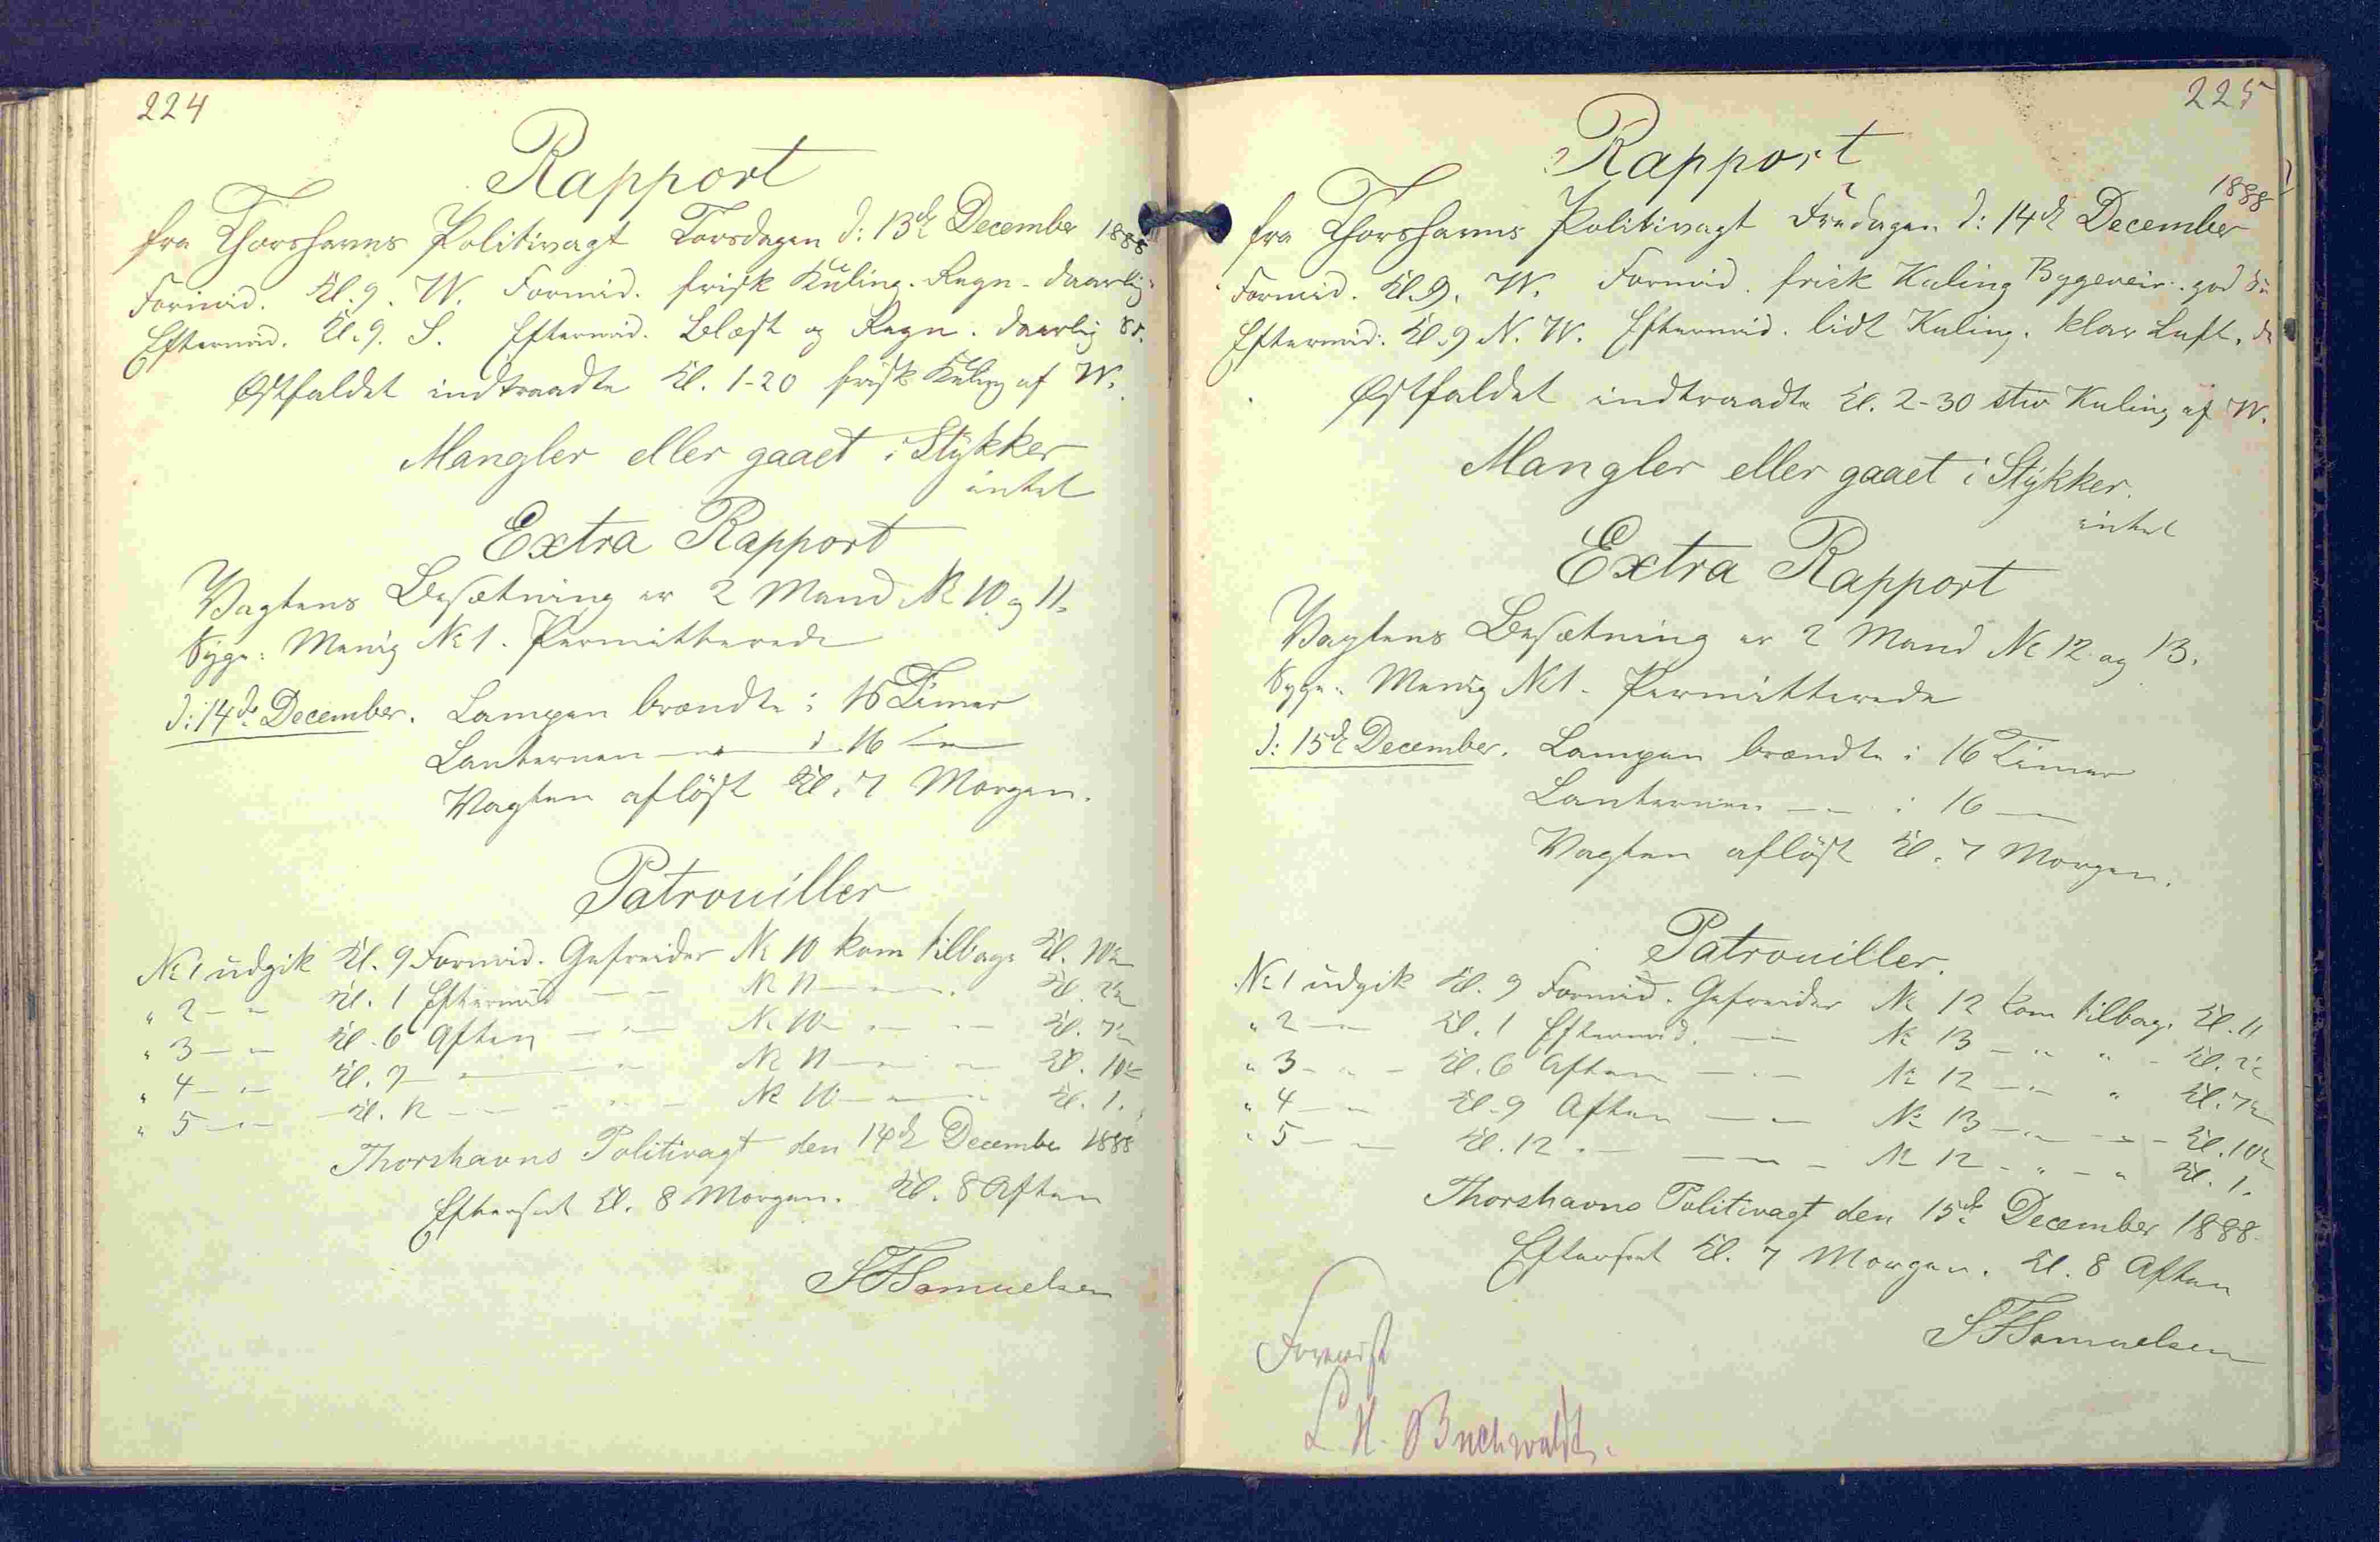 224
Rapport
fra Thorshavns Politivagt Torsdagen d: 13de December 1888
Formid. Kl. 9. W. Formid. frisk Kuling. Regn - daarlig
Eftermid. Kl. 9. S. Eftermid. Blæst og Regn. daarlig
Østfaldet indtraadte Kl. 1-20 frisk Kuling af W.
Mangler eller gaaet i Stykker
intet
Extra Rapport
Vagtens Besætning er 2 Mand No 10 og 11.
Syge: Menig No 1. Permitterede
d: 14de December. Lampen brændte i 16 Timer
Lanternen — " — i 16 — " —
Vagten afløst Kl. 7 Morgen.
Patrouiller
No 1 udgik Kl. 9 Formid. Gefreider No 10 kom tilbage Kl. 10½
" 2 — " Kl. 1 Eftermid — " — No 11 — " — Kl. 2½
" 3 — " Kl. 6 Aften — " — No 10 — " — Kl. 7½
" 4 — " Kl. 9 — " — No 11 — " — Kl. 10½
" 5 — " — Kl. 12 — " — No 10 — " — Kl. 1.
Thorshavns Politivagt den 14de December 1888
Efterseet Kl. 8 Morgen. Kl. 8 Aften
Samuelsen
225
Rapport
1888
fra Thorshavns Politivagt Fredagen d: 14de December
Formid. Kl. 9. W. Formid. frisk Kuling Bygeveir. god
Eftermid. Kl. 9 N. W. Eftermid. lidt Kuling. klar Luft.
Østfaldet indtraadte Kl. 2-30 stiv Kuling af W.
Mangler eller gaaet i Stykker.
intet
Extra Rapport
Vagtens Besætning er 2 Mand No 12 og 13.
Syge: Menig No 1. Permitterede
d: 15de December. Lampen brændte i 16 Timer
Lanternen — " — i 16 — " —
Vagten afløst Kl. 7 Morgen.
Patrouiller.
No 1 udgik Kl. 9 Formid. Gefreider No 12 kom tilbage Kl. 11
" 2 — " Kl. 1 Eftermid. — " — No 13 — " — " — Kl. 2½
" 3 — " — Kl. 6 Aften — " — No 12 — " — " Kl. 7½
" 4 — " Kl. 9 Aften — " — No 13 — " — " — Kl. 10½
" 5 — " Kl. 12 " — " — No 12 — " — " Kl. 1.
Thorshavns Politivagt den 15de December 1888.
Efterseet Kl. 7 Morgen. Kl. 8 Aften
Samuelsen
Forevist
L. H. Buchwaldt.